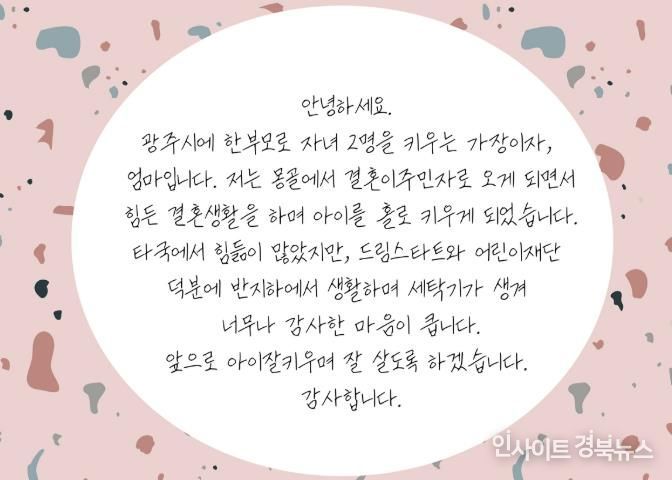 안녕하세요.
광주시에 한부모로 자녀 2명을 키우는 가장이자,
엄마입니다. 저는 몽골에서 결혼이주민자로 오게 되면서
힘든 결혼생활을 하며 아이를 홀로 키우게 되었습니다.
타국에서 힘듦이 많았지만, 드림스타트와 어린이재단
덕분에 반지하에서 생활하며 세탁기가 생겨
너무나 감사한 마음이 큽니다.
앞으로 아이잘키우며 잘 살도록 하겠습니다.
감사합니다.
인사이트 경북뉴스